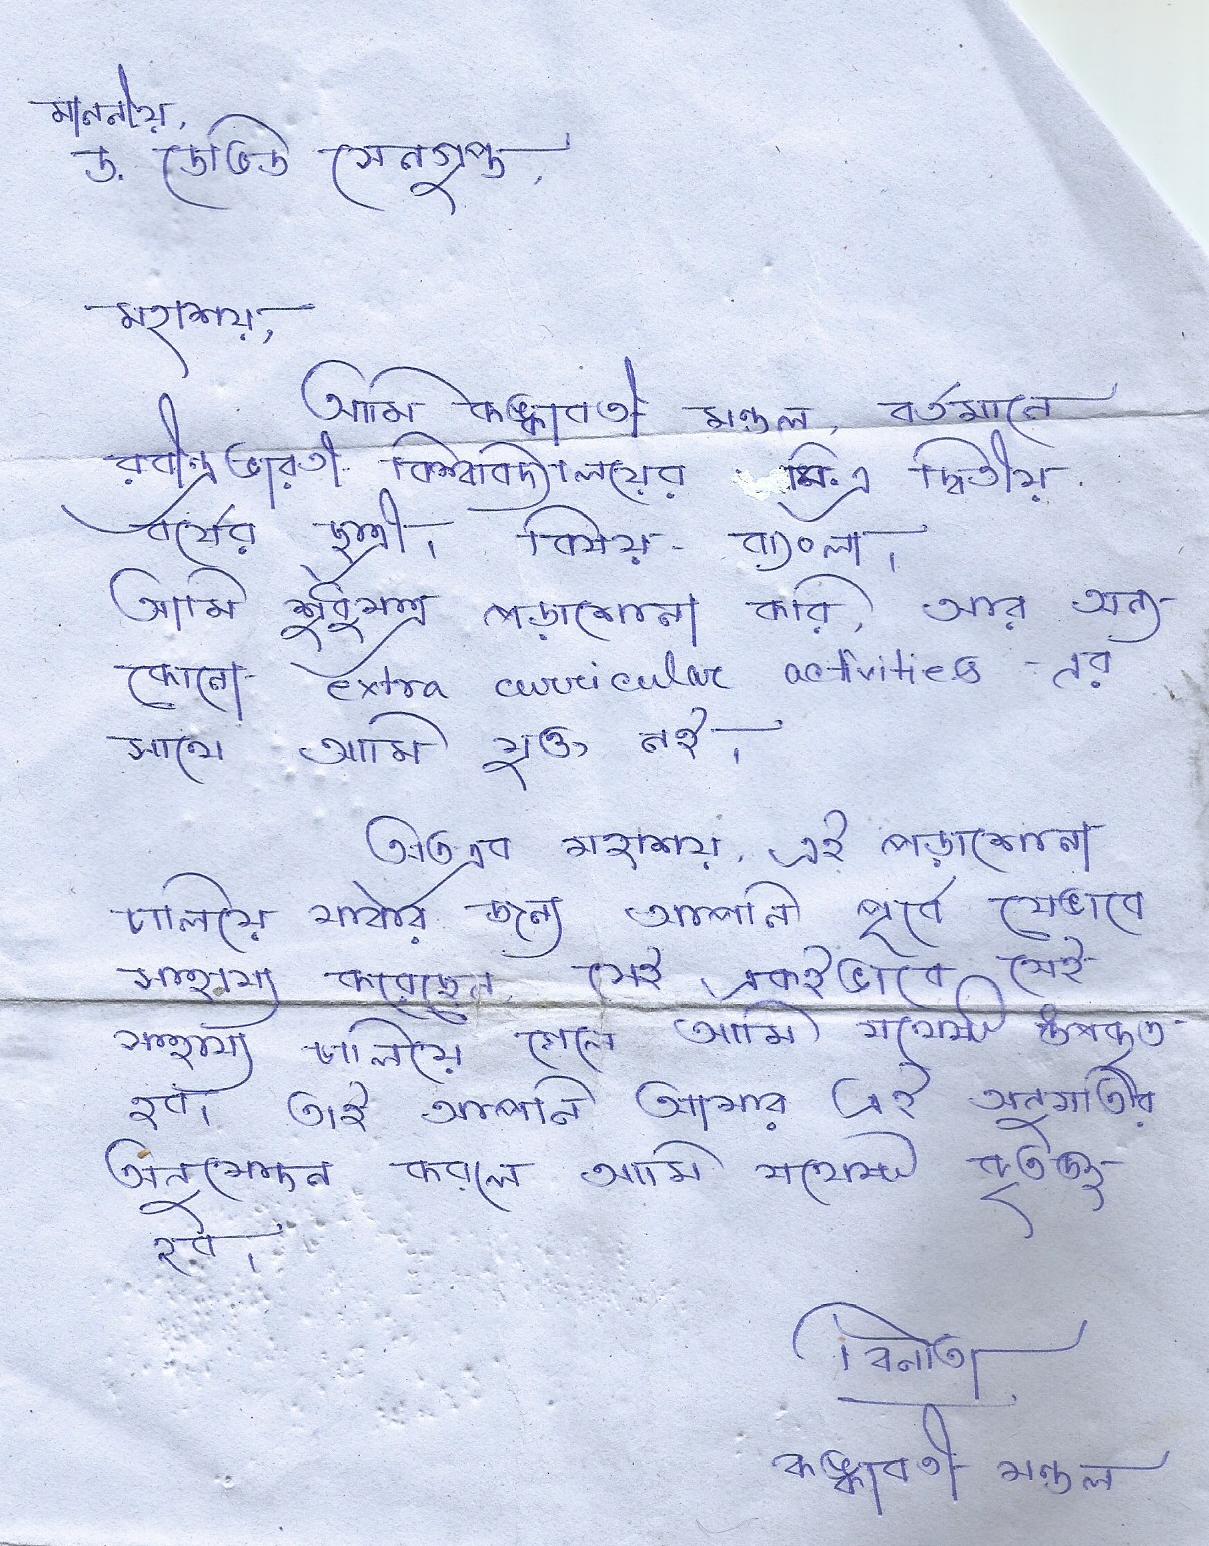 মাননীয়,
ড. ডেভিড সেনগুপ্ত,
মহাশয়,
আমি কঙ্কাবতী মন্ডল, বর্তমানে
রবীন্দ্রভারতী বিশ্ববিদ্যালয়ের এম.এ দ্বিতীয়
বর্ষের ছাত্রী। বিষয় - বাংলা।
আমি শুধুমাত্র পড়াশোনা করি, আর অন্য
কোনো extra curricular activities -এর
সাথে আমি যুক্ত নই।
অতএব মহাশয়, এই পড়াশোনা
চালিয়ে যাবার জন্য আপনি পূর্বে যেভাবে
সাহায্য করেছেন, সেই একইভাবে সেই
সাহায্য চালিয়ে গেলে আমি যথেষ্ট উপকৃত
হব। তাই আপনি আমার এই অনুমতির
অনুমোদন করলে আমি যথেষ্ট কৃতজ্ঞ
হব।
বিনীতা
কঙ্কাবতী মন্ডল